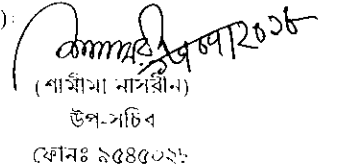 ):
(শামীমা নাসরীন)
উপ-সচিব
ফোনঃ ৯৫৪৫০২৮